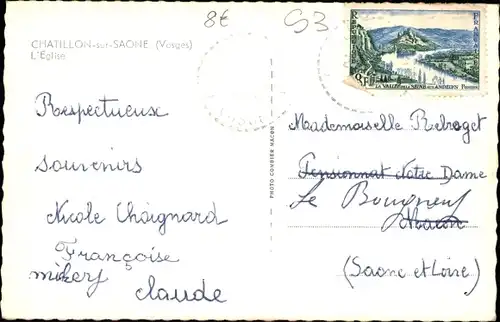 8€ S3
CHATILLON-sur-SAONE (Vosges)
L'Eglise
Respectueux
Souvenirs
Nicole Choignard
Françoise
Claude
PHOTO COMBIER MACON
FRANÇAISE
8F
LA VALLEE DE LA SEINE AUX ANDELYS
Mademoiselle Rebroget
Pensionnat Notre Dame
Le Bougneuf
Macon
(Saone et Loire)